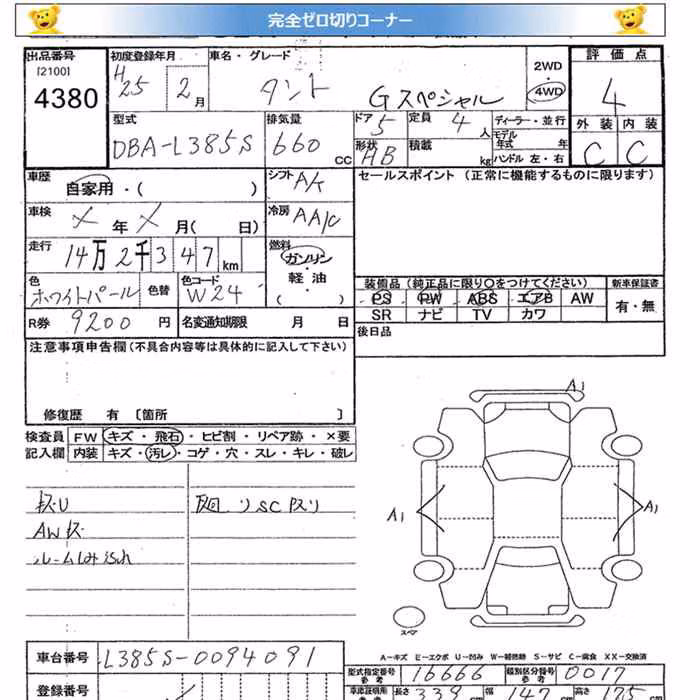 完全ゼロ切りコーナー
出品番号 初度登録年月 車名・グレード 2WD 評価点
[2100] H25 2月 タント Gスペシャル 4WD 4
4380
型式 排気量 ドア 定員 ディーラー・並行 外装 内装
DBA-L385S 660 CC 5 4人 モデル年式 年 C C
形状 積載 kg ハンドル 左・右
AB
車歴 シフト セールスポイント (正常に機能するものに限ります)
自家用・( ) A/t
車検 冷房
X年X月( 日) AA/C
走行 燃料
14万2千347km ガソリン
軽油
( )
色 色替 色コード 装備品 (純正品に限り〇をつけてください) 新車保証書
ホワイトパール W24 PS PW ABS エアB AW 有・無
SR ナビ TV カワ
R券 9200円 名変通知期限 月 日 後日品
注意事項申告欄 (不具合内容等は具体的に記入して下さい)
修復歴 有 〔箇所 〕
検査員 FW キズ・飛石・ヒビ割・リペア跡・×要
記入欄 内装 キズ・汚レ・コゲ・穴・スレ・キレ・破レ
A1
A1 A1
スペア
A-キズ E-エクボ U-凹み W-補修跡 S-サビ C-腐食 XX-交換済
車台番号 L385S-0094091 型式指定番号 参考 16666 類別区分番号 参考 0017
登録番号 長さ 339 幅 147 高さ 175